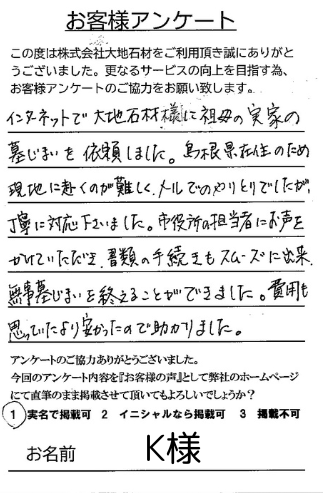 お客様アンケート
この度は株式会社大地石材をご利用頂き誠にありがと
うございました。更なるサービスの向上を目指す為、
お客様アンケートのご協力をお願い致します。
インターネットで大地石材様に祖母の実家の
墓じまいを依頼しました。島根県在住のため
現地に赴くのが難しく、メールでのやりとりでしたが、
丁寧に対応下さいました。市役所の担当者にお声を
かけていただき、書類の手続きもスムーズに出来、
無事墓じまいを終えることができました。費用も
思っていたより安かったので助かりました。
アンケートのご協力ありがとうございました。
今回のアンケート内容を『お客様の声』として弊社のホームページ
にて直筆のまま掲載させて頂いてもよろしいでしょうか?
1 実名で掲載可 2 イニシャルなら掲載可 3 掲載不可
お名前 K様